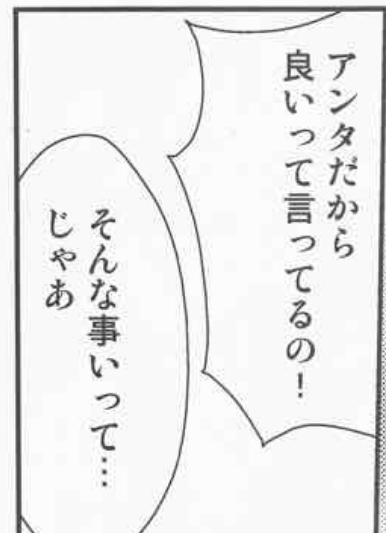 アンタだから
良いって言ってるの！
そんな事いって…
じゃあ